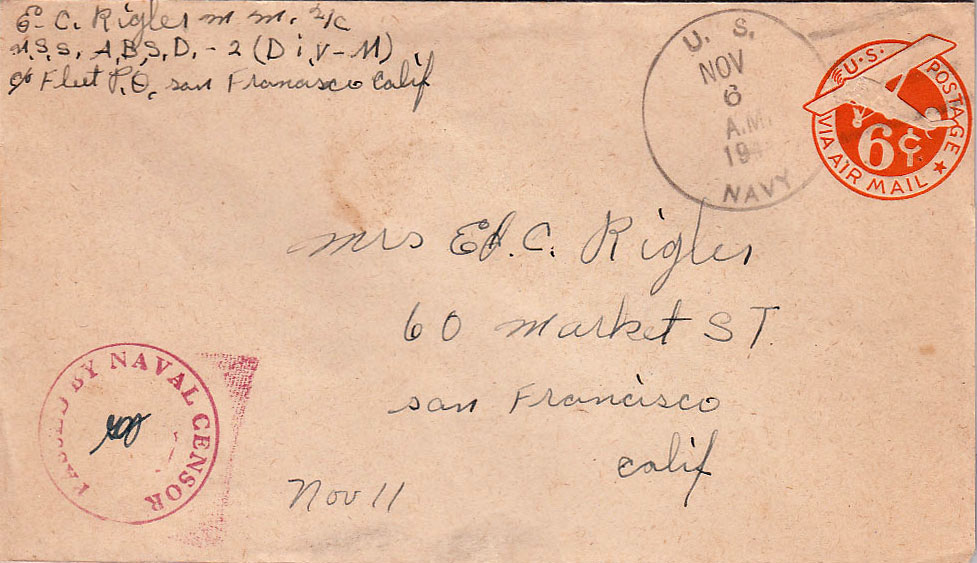 E. C. Rigler M. M. 2/c
U.S.S. A.B.S.D. - 2 (DiV-M)
c/o Fleet P.O. San Francisco Calif
U. S.
NOV
6
A.M.
19
NAVY
U.S. POSTAGE
6¢
VIA AIR MAIL
Mrs Ed. C. Rigler
60 Market ST.
San Francisco
Calif
PASSED BY NAVAL CENSOR
Nov 11